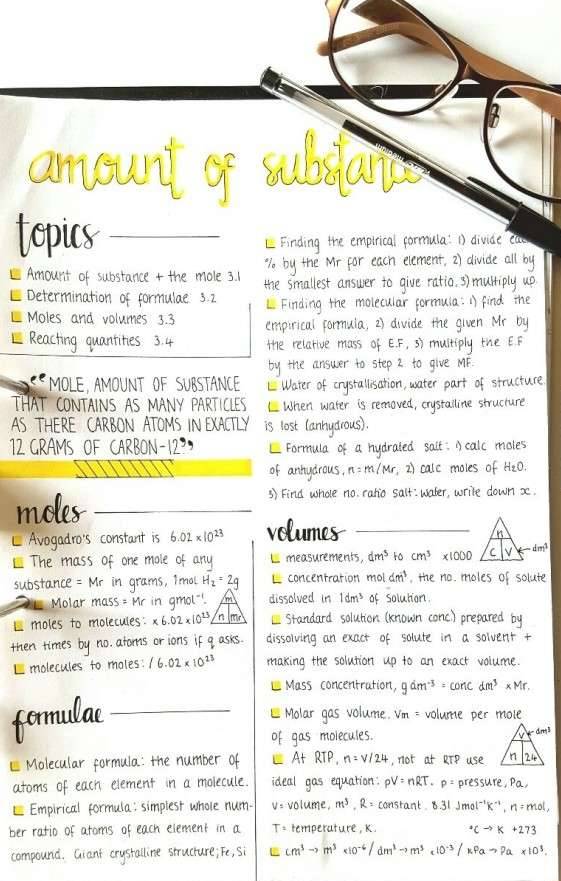 amount of substance
topics
Amount of substance + the mole 3.1
Determination of formulae 3.2
Moles and volumes 3.3
Reacting quantities 3.4
"MOLE, AMOUNT OF SUBSTANCE
THAT CONTAINS AS MANY PARTICLES
AS THERE CARBON ATOMS IN EXACTLY
12 GRAMS OF CARBON-12"
moles
Avogadro's constant is 6.02 x 10²³
The mass of one mole of any
substance = Mr in grams, 1mol H₂ = 2g
Molar mass = Mr in gmol⁻¹.
m
n mr
moles to molecules: x 6.02 x 10²³
then times by no. atoms or ions if q asks.
molecules to moles: / 6.02 x 10²³
formulae
Molecular formula: the number of
atoms of each element in a molecule.
Empirical formula: simplest whole num-
ber ratio of atoms of each element in a
compound. Giant crystalline structure; Fe, Si
Finding the empirical formula: 1) divide
% by the Mr for each element, 2) divide all by
the smallest answer to give ratio, 3) multiply up.
Finding the molecular formula: 1) find the
empirical formula, 2) divide the given Mr by
the relative mass of E.F, 3) multiply the E.F
by the answer to step 2 to give MF.
Water of crystallisation, water part of structure.
When water is removed, crystalline structure
is lost (anhydrous).
Formula of a hydrated salt: 1) calc moles
of anhydrous, n = m/Mr, 2) calc moles of H₂O.
3) Find whole no. ratio salt: water, write down x.
volumes
n
c v ← dm³
measurements, dm³ to cm³ x1000
concentration mol dm³, the no. moles of solute
dissolved in 1dm³ of solution.
Standard solution (known conc.) prepared by
dissolving an exact of solute in a solvent +
making the solution up to an exact volume.
Mass concentration, g dm⁻³ = conc dm³ x Mr.
Molar gas volume. Vm = volume per mole
of gas molecules.
v ← dm³
n 24
At RTP, n = V/24, not at RTP use
ideal gas equation: pV = nRT. p = pressure, Pa,
v = volume, m³, R = constant. 8.31 Jmol⁻¹K⁻¹, n = mol,
T = temperature, K. °C → K +273
cm³ → m³ x10⁻⁶ / dm³ → m³ x10⁻³ / kPa → Pa x 10³.